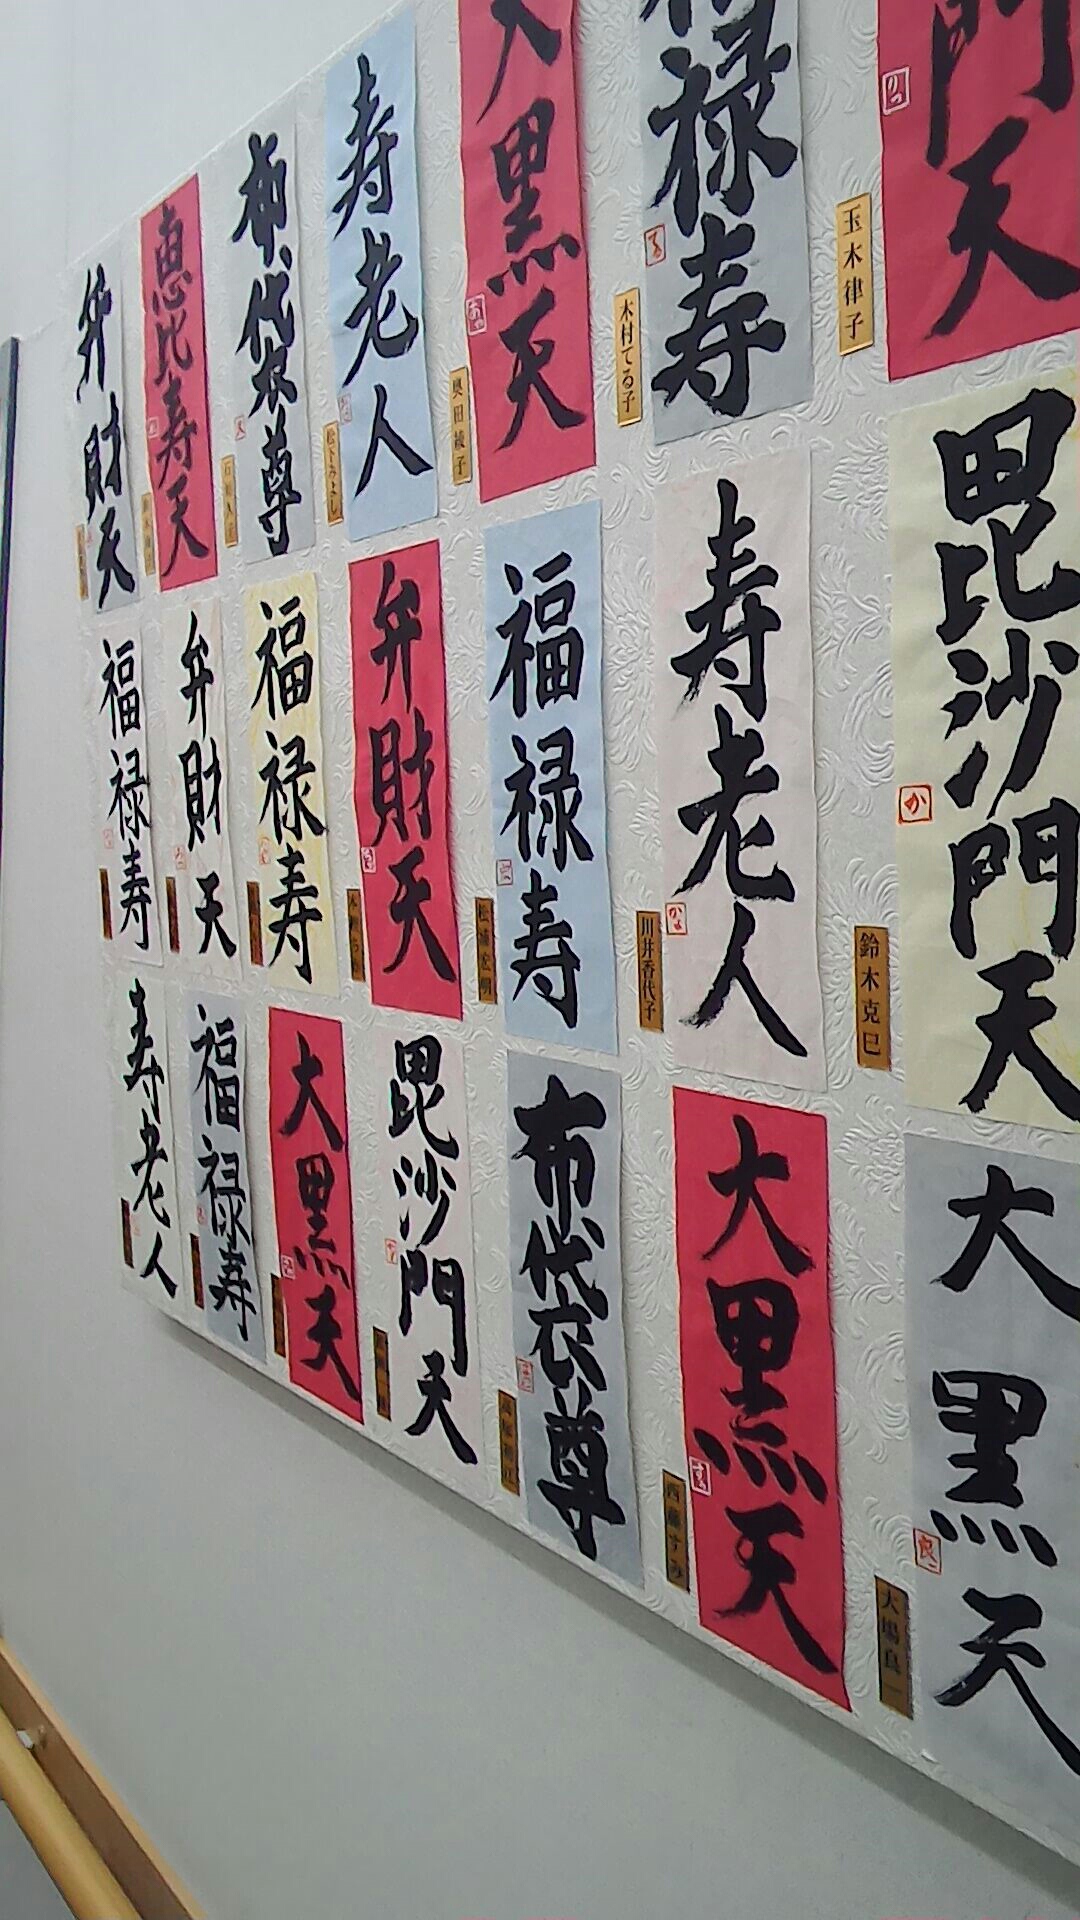 弁財天
恵比寿天
布袋尊
寿老人
大黒天
福禄寿
門天
福禄寿
弁財天
福禄寿
弁財天
福禄寿
寿老人
毘沙門天
寿老人
福禄寿
大黒天
毘沙門天
布袋尊
大黒天
大黒天
松下みよし
奥田綾子
木村てる子
玉木律子
川井香代子
鈴木克巳
西藤すみ
大場良一
りつ
て
かよ
か
すみ
良一